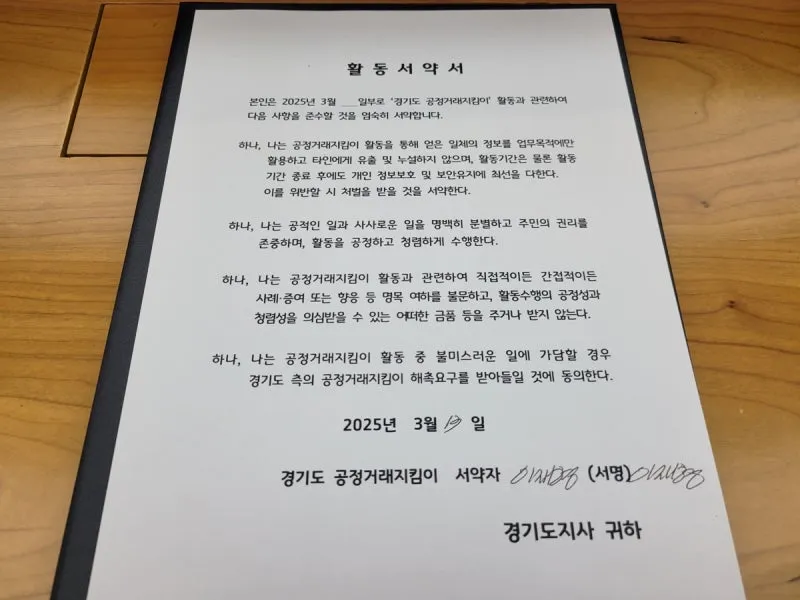 활동서약서
본인은 2025년 3월 ___일부로 '경기도 공정거래지킴이' 활동과 관련하여
다음 사항을 준수할 것을 엄숙히 서약합니다.
하나, 나는 공정거래지킴이 활동을 통해 얻은 일체의 정보를 업무목적에만
활용하고 타인에게 유출 및 누설하지 않으며, 활동기간은 물론 활동
기간 종료 후에도 개인 정보보호 및 보안유지에 최선을 다한다.
이를 위반할 시 처벌을 받을 것을 서약한다.
하나, 나는 공적인 일과 사사로운 일을 명백히 분별하고 주민의 권리를
존중하며, 활동을 공정하고 청렴하게 수행한다.
하나, 나는 공정거래지킴이 활동과 관련하여 직접적이든 간접적이든
사례·증여 또는 향응 등 명목 여하를 불문하고, 활동수행의 공정성과
청렴성을 의심받을 수 있는 어떠한 금품 등을 주거나 받지 않는다.
하나, 나는 공정거래지킴이 활동 중 불미스러운 일에 가담할 경우
경기도 측의 공정거래지킴이 해촉요구를 받아들일 것에 동의한다.
2025년 3월 일
경기도 공정거래지킴이 서약자 (서명)
경기도지사 귀하